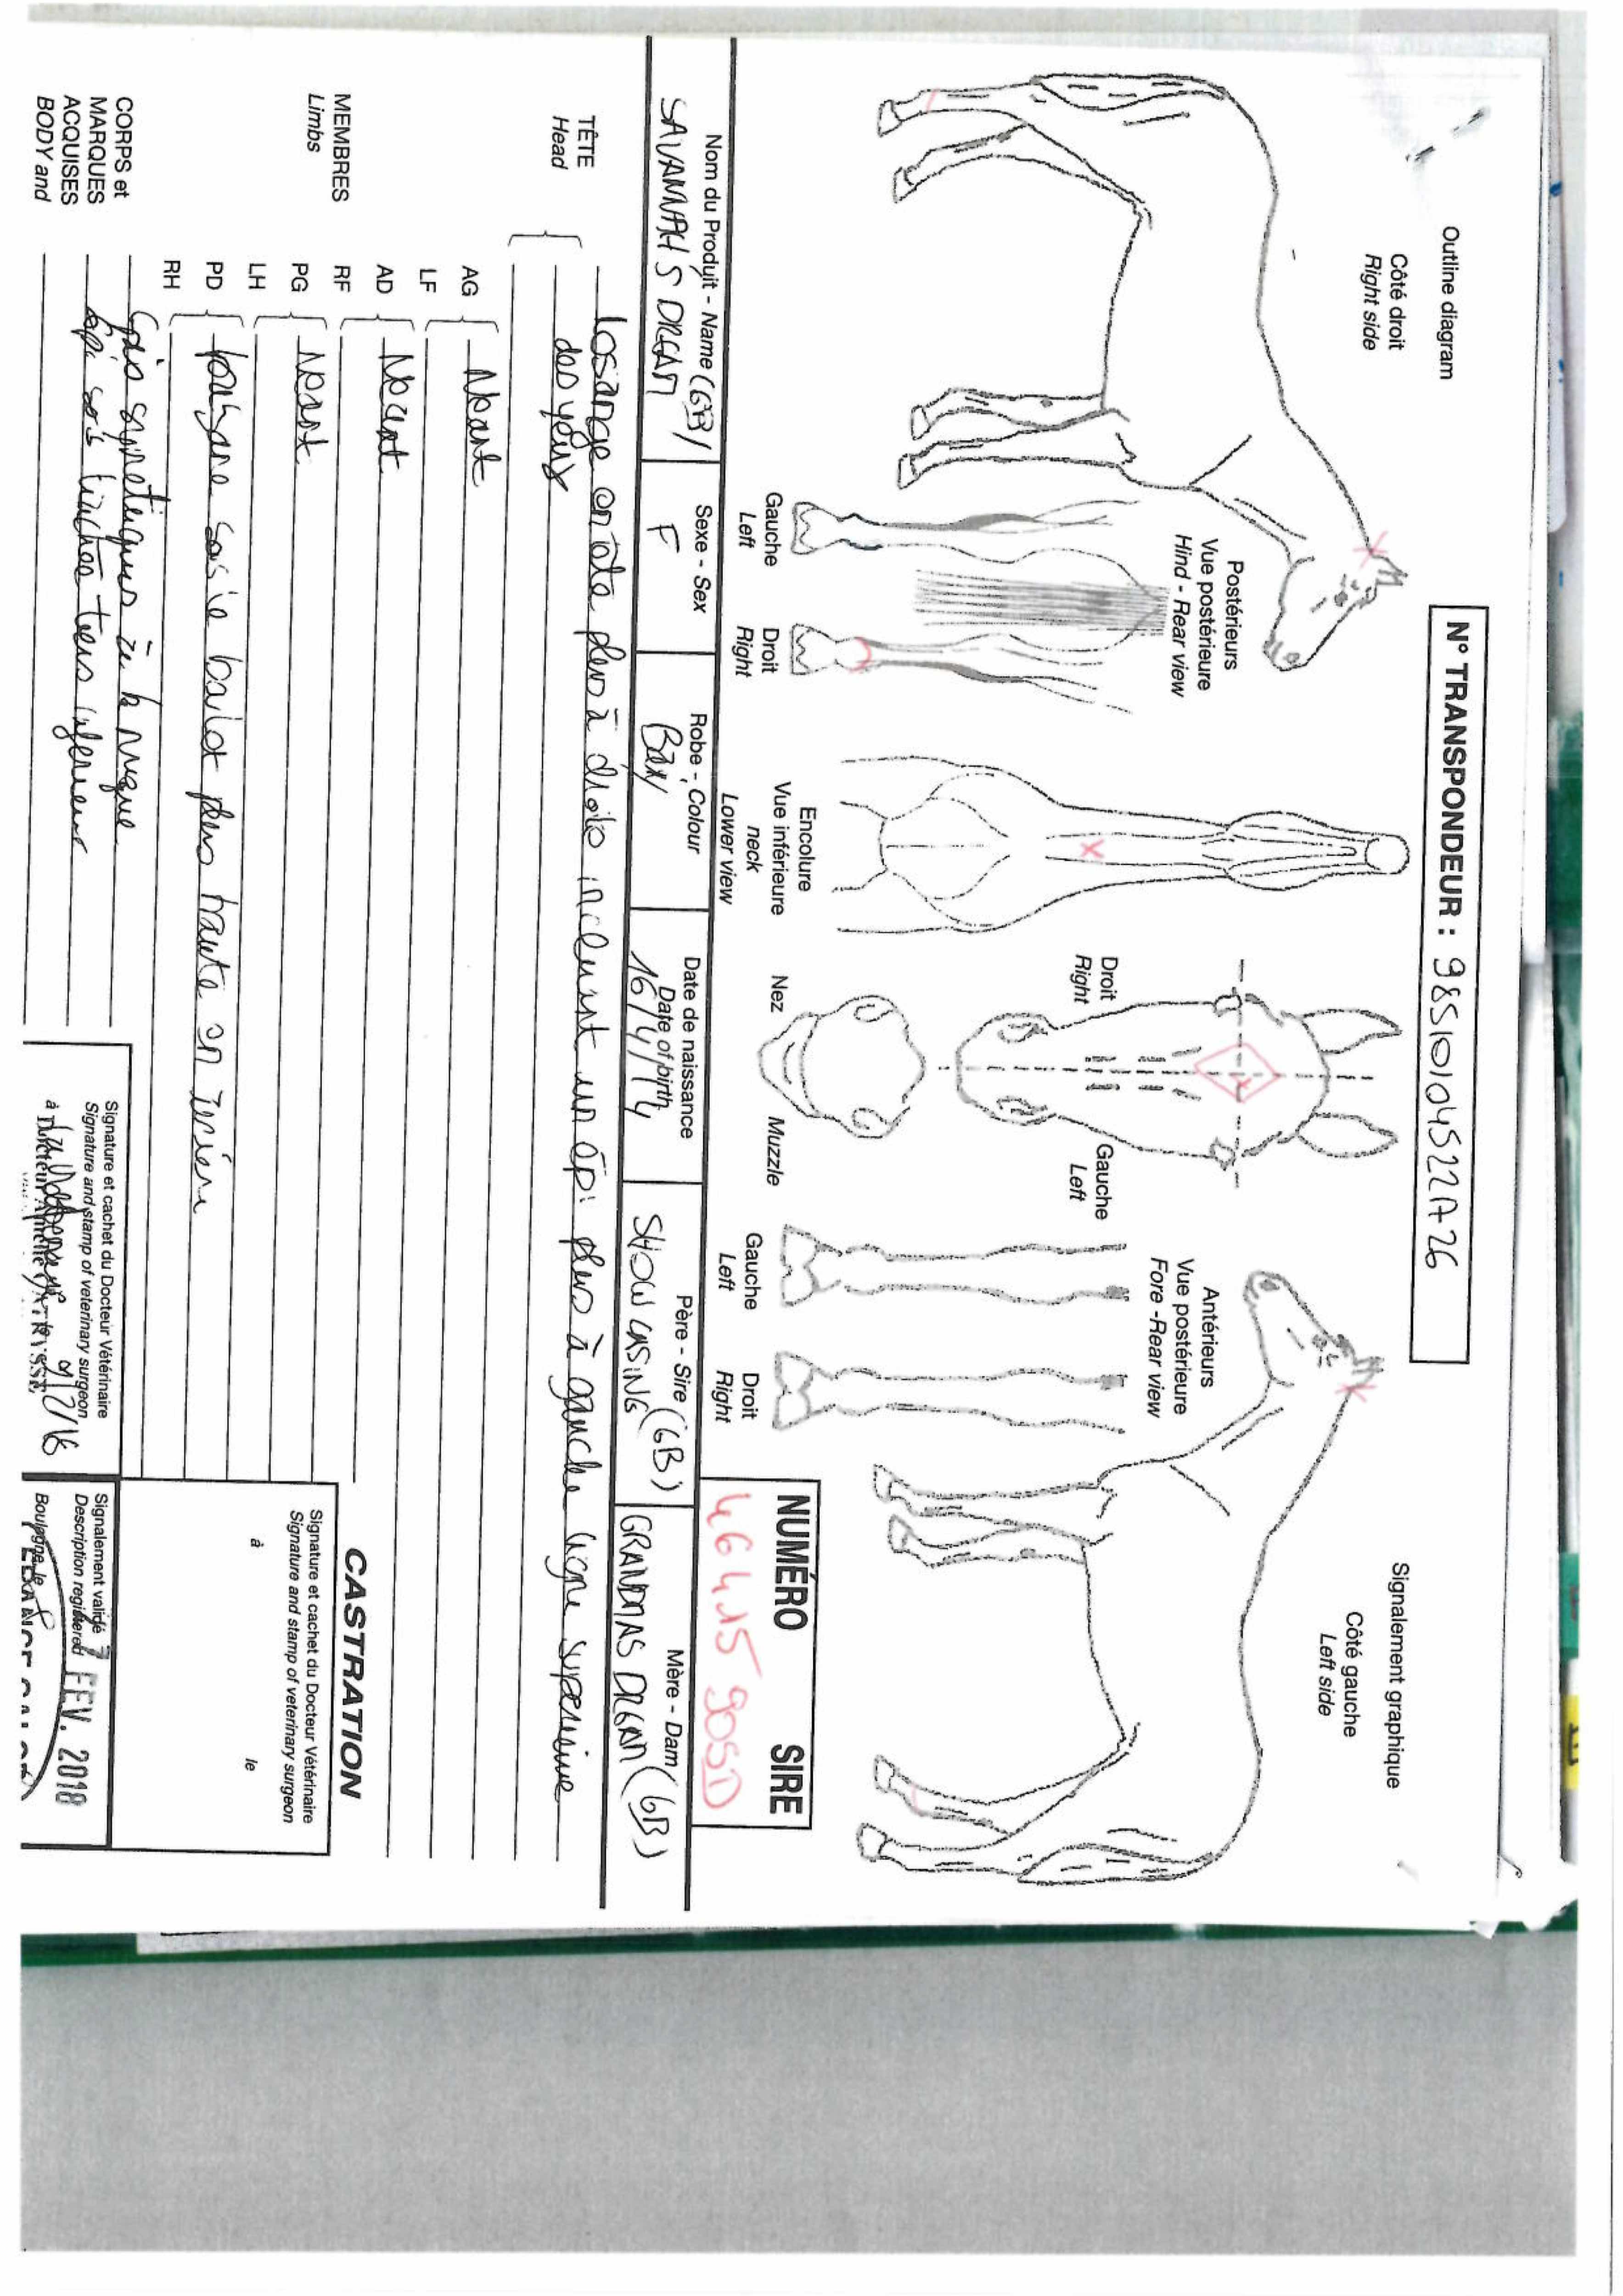 N° TRANSPONDEUR : 98510104522A26
Outline diagram
Signalement graphique
Côté droit
Right side
Côté gauche
Left side
Postérieurs
Vue postérieure
Hind - Rear view
Droit
Right
Gauche
Left
Antérieurs
Vue postérieure
Fore - Rear view
Gauche
Left
Droit
Right
Encolure
Vue inférieure
neck
Lower view
Nez
Muzzle
Gauche
Left
Droit
Right
NUMÉRO SIRE
Nom du Produit - Name (GB)
SAVANNAH S DREAM
Sexe - Sex
F
Robe - Colour
Bay
Date de naissance
Date of birth
16/4/14
Père - Sire (GB)
SHOWCASING
Mère - Dam (GB)
GRANDMAS DREAM
TÊTE
Head
Losange en tête plus à droite incluant un épi plus à gauche ligne supérieure
des yeux
MEMBRES
Limbs
AG
LF
Néant
AD
RF
Néant
PG
LH
Néant
PD
RH
balzane sous le boulet plus haute en
CORPS et
MARQUES
ACQUISES
BODY and
Epis symétriques à la nuque
épi sous tiers inférieur
CASTRATION
Signature et cachet du Docteur Vétérinaire
Signature and stamp of veterinary surgeon
à le
Signature et cachet du Docteur Vétérinaire
Signature and stamp of veterinary surgeon
à
Signalement validé
Description registered
7 FEV. 2018
Boulogne, le
FRANCE GALOP